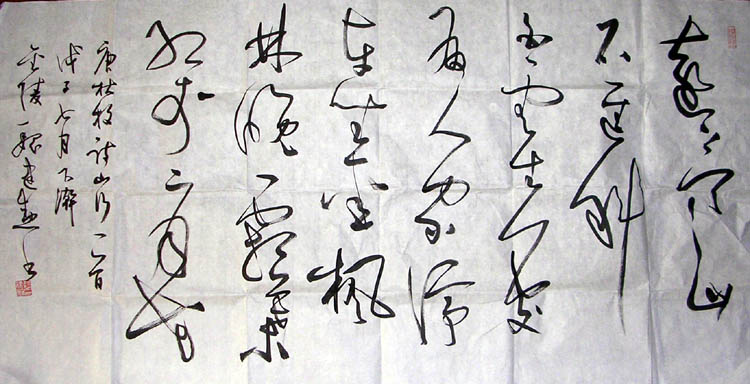 遠上寒山
石徑斜
白雲生處
有人家停
車坐愛楓
林晚霜葉
紅於二月花
唐杜牧詩山行一首
戊子七月下澣
金陵建書